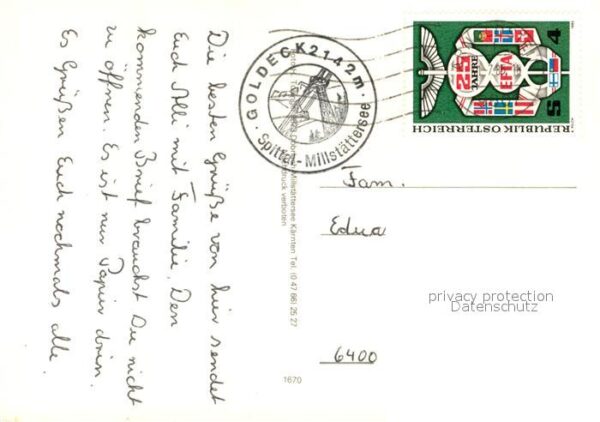 Die besten Grüße von hier sendet
Euch Alli mit Familie. Den
kommenden Brief brauchst Du nicht
zu öffnen. Es ist nur Papier drin.
Es Grüßen Euch nochmals alle.
GOLDECK 2142m
Spittal-Millstättersee
25 JAHRE
EFTA
S 4
REPUBLIK ÖSTERREICH
Millstättersee Kärnten Tel. (0 47 66) 25 27
druck verboten
1670
Fam.
Edua
6400
privacy protection
Datenschutz